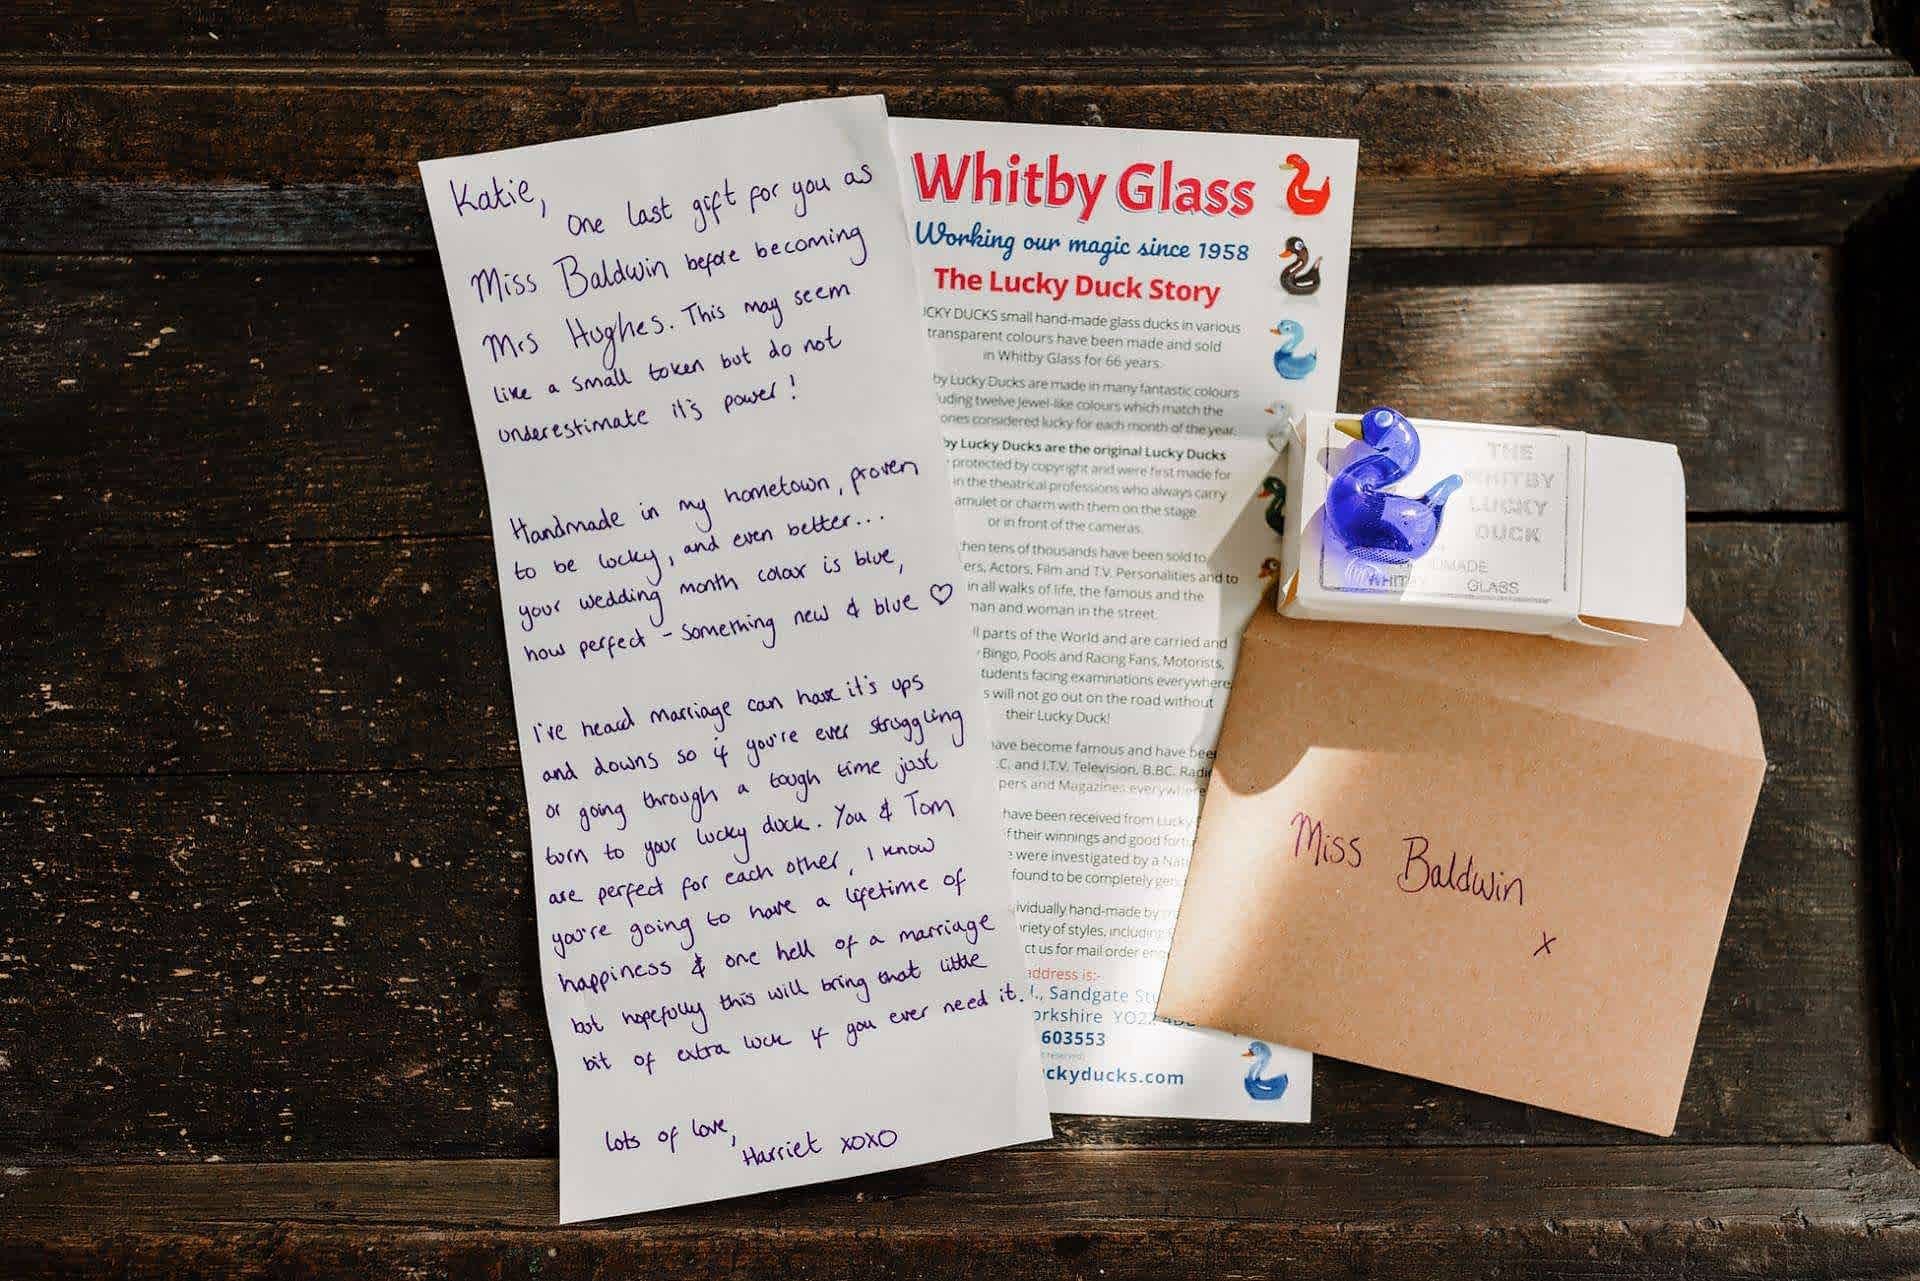 Katie,
One last gift for you as
Miss Baldwin before becoming
Mrs Hughes. This may seem
like a small token but do not
underestimate it's power!
Handmade in my hometown, proven
to be lucky, and even better...
your wedding month colour is blue,
how perfect - something new & blue ♡
I've heard marriage can have it's ups
and downs so if you're ever struggling
or going through a tough time just
turn to your lucky duck. You & Tom
are perfect for each other, I know
you're going to have a lifetime of
happiness & one hell of a marriage
but hopefully this will bring that little
bit of extra luck if you ever need it.
Lots of love,
Harriet xoxo
Whitby Glass
Working our magic since 1958
The Lucky Duck Story
CKY DUCKS small hand-made glass ducks in various
transparent colours have been made and sold
in Whitby Glass for 66 years.
by Lucky Ducks are made in many fantastic colours
uding twelve Jewel-like colours which match the
ones considered lucky for each month of the year.
by Lucky Ducks are the original Lucky Ducks
protected by copyright and were first made for
in the theatrical professions who always carry
amulet or charm with them on the stage
or in front of the cameras.
hen tens of thousands have been sold to
ers, Actors, Film and T.V. Personalities and to
in all walks of life, the famous and the
man and woman in the street.
ll parts of the World and are carried and
Bingo, Pools and Racing Fans, Motorists,
tudents facing examinations everywhere,
s will not go out on the road without
their Lucky Duck!
have become famous and have been
.C. and I.T.V. Television, B.B.C. Radio
pers and Magazines everywhere
have been received from Lucky
f their winnings and good fortu
e were investigated by a Nat
found to be completely gen
ividually hand-made by
riety of styles, including
ct us for mail order enq
address is:-
., Sandgate St
orkshire YO22
603553
ckyducks.com
THE
WHITBY
LUCKY
DUCK
NDMADE
WHITBY GLASS
Miss Baldwin
x